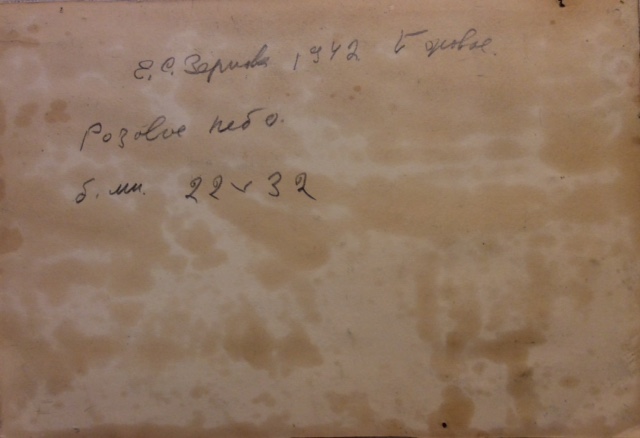 Е. С. Зернова 1942 Боровое.
Розовое небо.
б. мм. 22 х 32